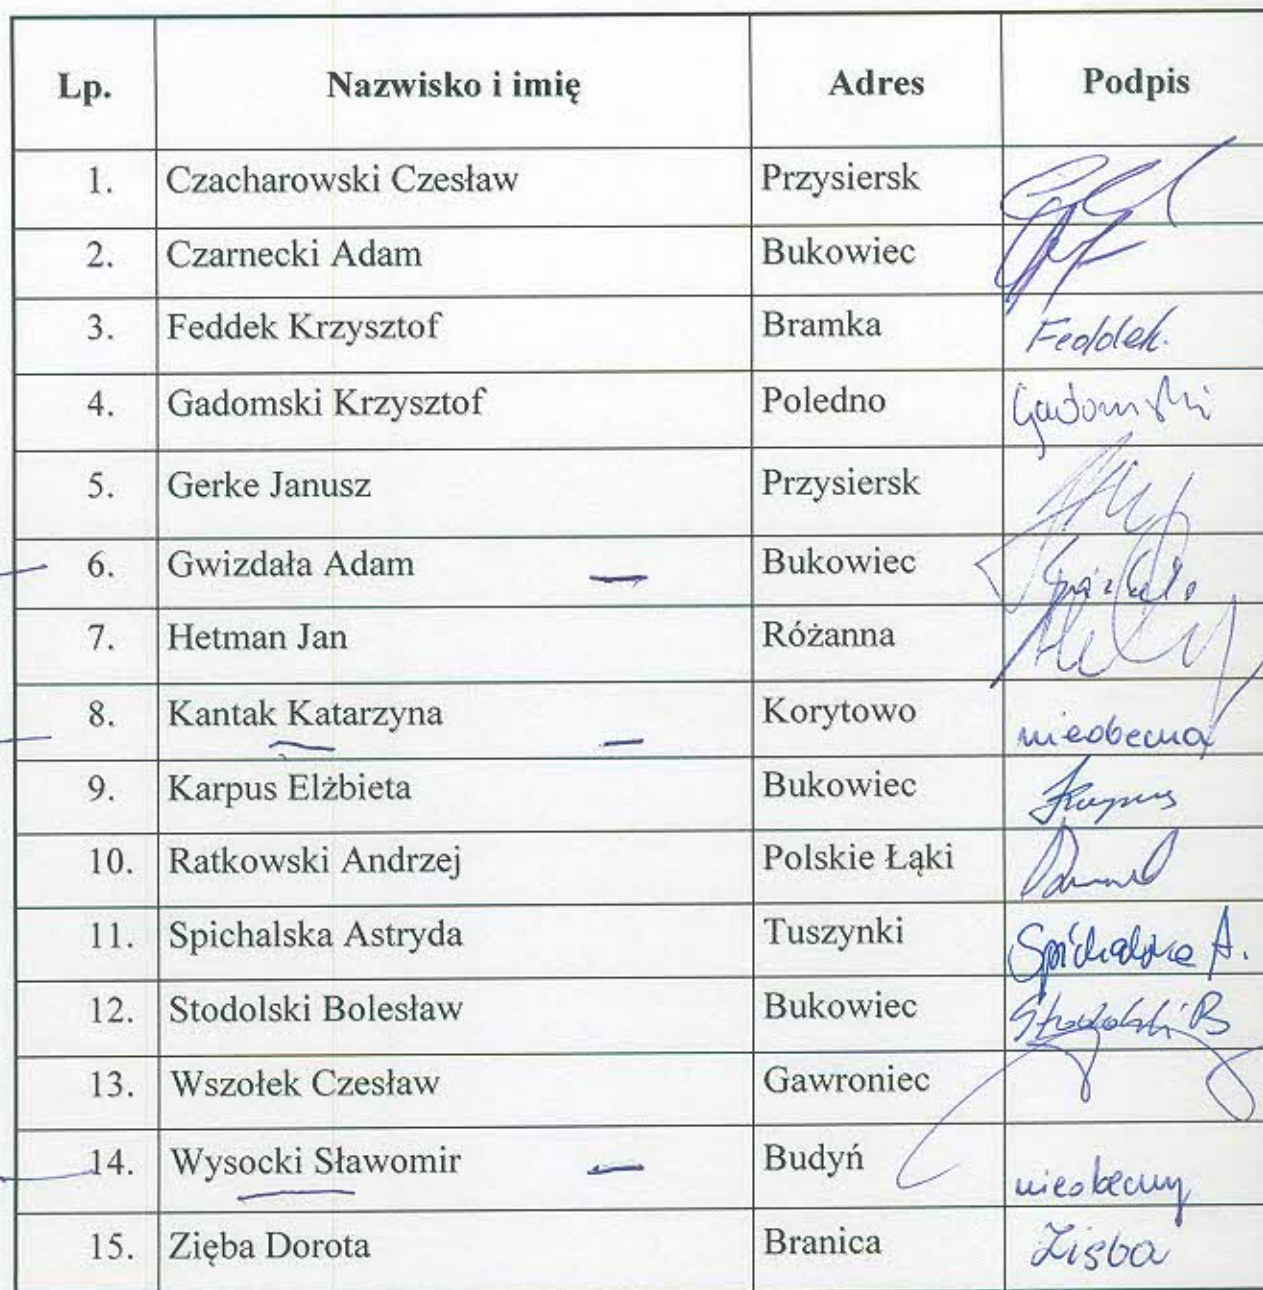 Lp. Nazwisko i imię Adres Podpis
1. Czacharowski Czesław Przysiersk
2. Czarnecki Adam Bukowiec
3. Feddek Krzysztof Bramka Feddek.
4. Gadomski Krzysztof Poledno Gadomski
5. Gerke Janusz Przysiersk
6. Gwizdała Adam Bukowiec
7. Hetman Jan Różanna
8. Kantak Katarzyna Korytowo nieobecna
9. Karpus Elżbieta Bukowiec Karpus
10. Ratkowski Andrzej Polskie Łąki
11. Spichalska Astryda Tuszynki Spichalska A.
12. Stodolski Bolesław Bukowiec Stodolski B
13. Wszołek Czesław Gawroniec
14. Wysocki Sławomir Budyń nieobecny
15. Zięba Dorota Branica Zięba